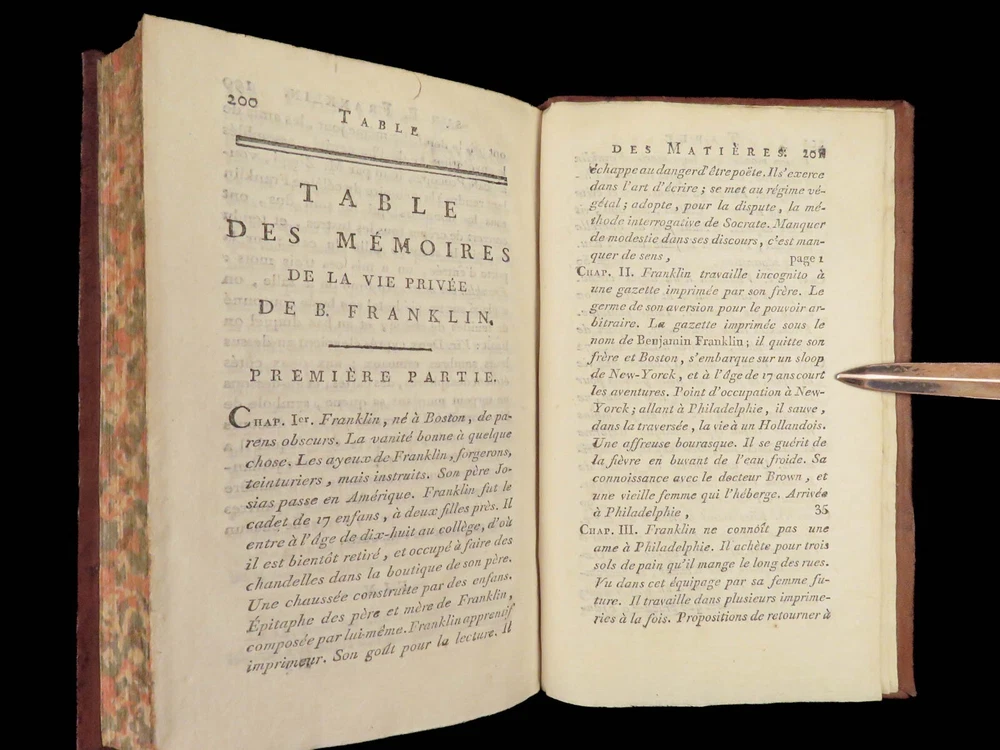 200
TABLE
TABLE
DES MÉMOIRES
DE LA VIE PRIVÉE
DE B. FRANKLIN.
PREMIÈRE PARTIE.
CHAP. Ier. Franklin, né à Boston, de pa-
rens obscurs. La vanité bonne à quelque
chose. Les ayeux de Franklin, forgerons,
teinturiers, mais instruits. Son père Jo-
sias passe en Amérique. Franklin fut le
cadet de 17 enfans, à deux filles près. Il
entre à l'âge de dix-huit au collège, d'où
il est bientôt retiré, et occupé à faire des
chandelles dans la boutique de son père.
Une chaussée construite par des enfans.
Épitaphe des père et mère de Franklin,
composée par lui-même. Franklin apprentif
imprimeur. Son goût pour la lecture. Il
DES MATIÈRES.
échappe au danger d'être poëte. Il s'exerce
dans l'art d'écrire; se met au régime vé-
gétal; adopte, pour la dispute, la mé-
thode interrogative de Socrate. Manquer
de modestie dans ses discours, c'est man-
quer de sens, page 1
CHAP. II. Franklin travaille incognito à
une gazette imprimée par son frère. Le
germe de son aversion pour le pouvoir ar-
bitraire. La gazette imprimée sous le
nom de Benjamin Franklin; il quitte son
frère et Boston, s'embarque sur un sloop
de New-Yorck, et à l'âge de 17 ans court
les aventures. Point d'occupation à New-
Yorck; allant à Philadelphie, il sauve,
dans la traversée, la vie à un Hollandois.
Une affreuse bourasque. Il se guérit de
la fièvre en buvant de l'eau froide. Sa
connoissance avec le docteur Brown, et
une vieille femme qui l'héberge. Arrivée
à Philadelphie, 35
CHAP. III. Franklin ne connoît pas une
ame à Philadelphie. Il achète pour trois
sols de pain qu'il mange le long des rues.
Vu dans cet équipage par sa femme fu-
ture. Il travaille dans plusieurs imprime-
ries à la fois. Propositions de retourner à